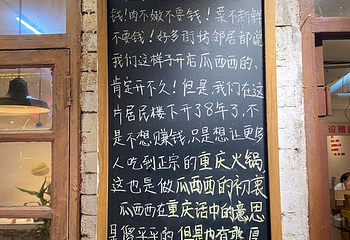 钱!肉不嫩不要钱!菜不新鲜
不要钱!好多街坊邻居都说
我们这样子开店瓜西西的,
肯定开不久!但是,我们在这
片居民楼下开了8年了,不
是不想赚钱,只是想让更多
人吃到正宗的重庆火锅
这也是做瓜西西的初衷
瓜西西在重庆话中的意思
是傻乎乎的,但是也有敦厚